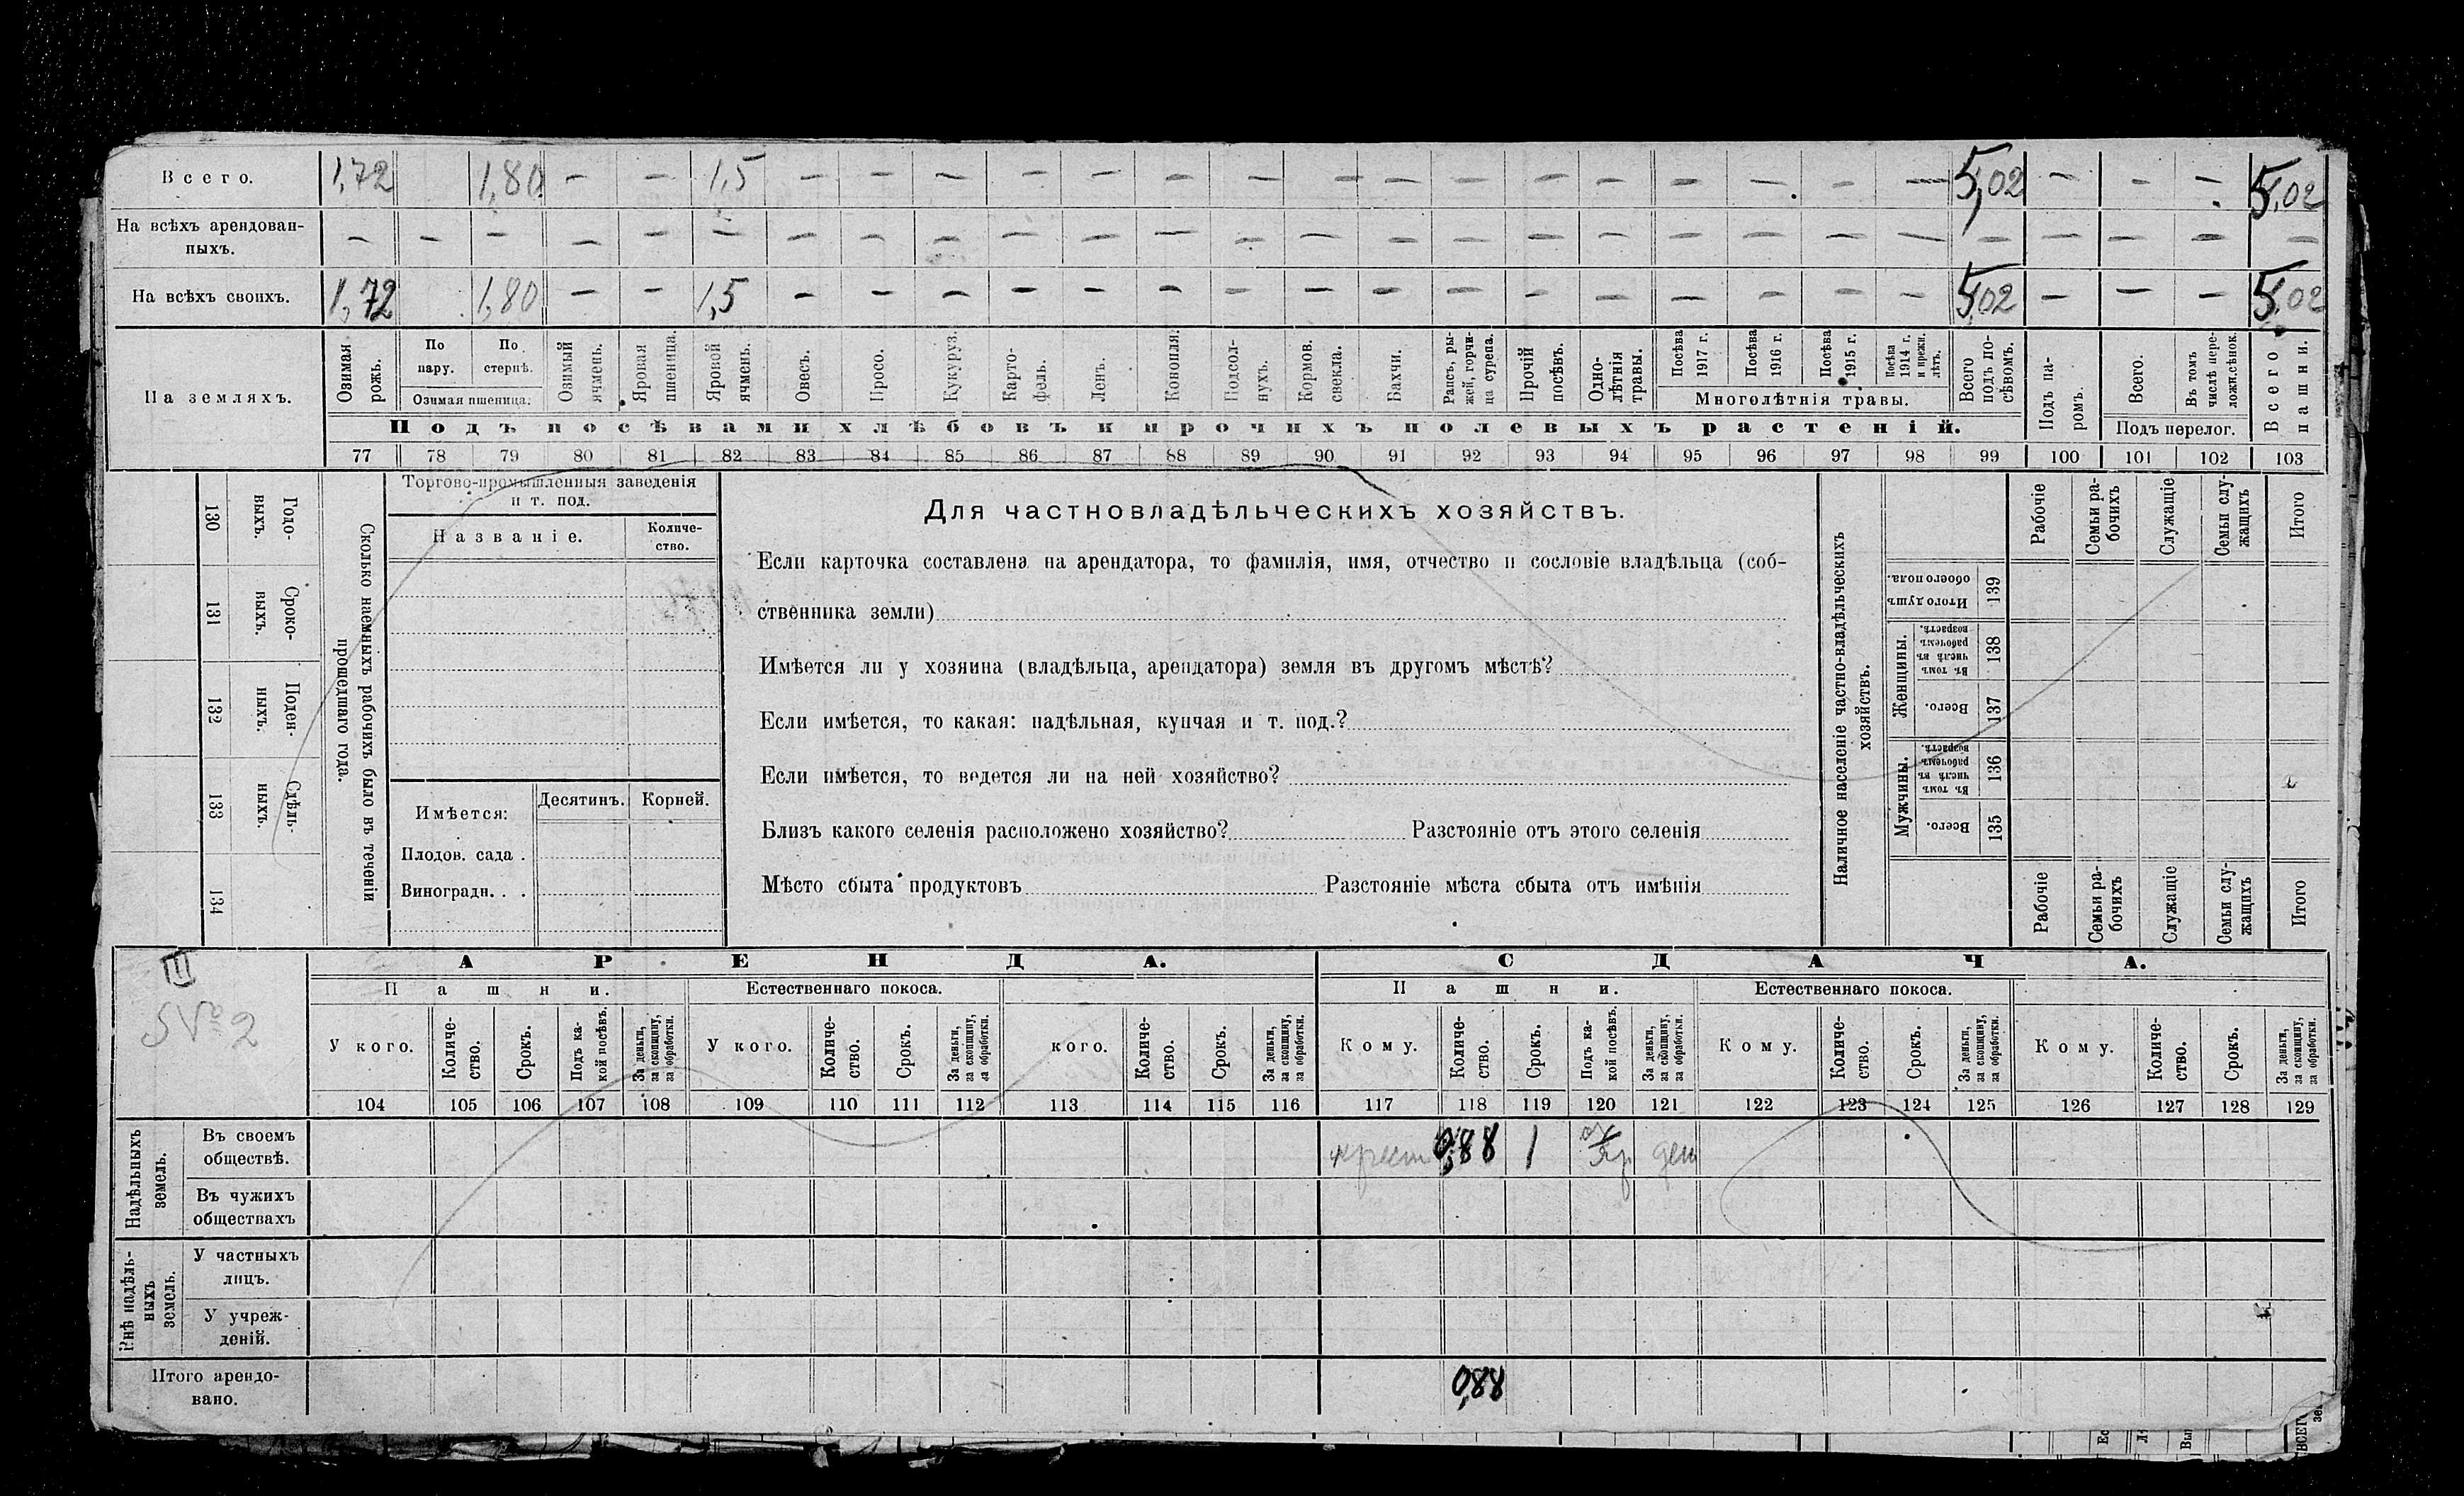 Всего. 1,72 1,80 — — 1,5 — — — — — — — — — — — — — — — — 5,02 — — — 5,02
На всѣхъ арендован-
ныхъ. — — — — — — — — — — — — — — — — — — — — — — — — — — —
На всѣхъ своихъ. 1,72 1,80 — — 1,5 — — — — — — — — — — — — — — — — 5,02 — — — 5,02
На земляхъ.
Озимая рожь.
По пару.
По стернѣ.
Озимая пшеница.
Озимый ячмень.
Яровая пшеница.
Яровой ячмень.
Овесъ.
Просо.
Кукуруз.
Карто-
фель.
Ленъ.
Конопля.
Подсол-
нухъ.
Кормов.
свекла.
Бахчи.
Рапсъ, ры-
жей, горчи-
ца сурепа.
Прочій
посѣвъ.
Одно-
лѣтнія
травы.
Посѣва
1917 г.
Посѣва
1916 г.
Посѣва
1915 г.
Посѣва
1914 г.
и прежн.
лѣтъ.
Многолѣтнія травы.
Всего
подъ по-
сѣвомъ.
Подъ па-
ромъ.
Всего.
Въ томъ
числѣ пере-
ложн.сѣнок.
Подъ перелог.
Всего
пашни.
Подъ посѣвами хлѣбовъ и прочихъ полевыхъ растеній.
77 78 79 80 81 82 83 84 85 86 87 88 89 90 91 92 93 94 95 96 97 98 99 100 101 102 103
Сколько наемныхъ рабочихъ было въ теченіи
прошедшаго года.
Годо-
выхъ.
130
Сроко-
выхъ.
131
Поден-
ныхъ.
132
Сдѣль-
ныхъ.
133
134
Торгово-промышленныя заведенія
и т. под.
Названіе.
Количе-
ство.
Имѣется:
Десятинъ.
Корней.
Плодов. сада .
Виноградн. . .
Для частновладѣльческихъ хозяйствъ.
Если карточка составлена на арендатора, то фамилія, имя, отчество и сословіе владѣльца (соб-
ственника земли)
Имѣется ли у хозяина (владѣльца, арендатора) земля въ другомъ мѣстѣ?
Если имѣется, то какая: надѣльная, купчая и т. под.?
Если имѣется, то ведется ли на ней хозяйство?
Близъ какого селенія расположено хозяйство? Разстояніе отъ этого селенія
Мѣсто сбыта продуктовъ Разстояніе мѣста сбыта отъ имѣнія
Наличное населеніе частно-владѣльческихъ
хозяйствъ.
Рабочіе
Семьи ра-
бочихъ
Служащіе
Семьи слу-
жащихъ
Итого
Итого душъ
обоего пола.
139
Женщины.
Въ томъ
числѣ въ
рабочемъ
возрастѣ.
138
Всего.
137
Мужчины.
Въ томъ
числѣ въ
рабочемъ
возрастѣ.
136
Всего.
135
Рабочіе
Семьи ра-
бочихъ
Служащіе
Семьи слу-
жащихъ
Итого
III
№ 2
АРЕНДА.
СДАЧА.
Пашни.
Естественнаго покоса.
Пашни.
Естественнаго покоса.
У кого.
Количе-
ство.
Срокъ.
Подъ ка-
кой посѣвъ.
За деньги,
за скопщину,
за обработки.
У кого.
Количе-
ство.
Срокъ.
За деньги,
за скопщину,
за обработки.
кого.
Количе-
ство.
Срокъ.
За деньги,
за скопщину,
за обработки.
Кому.
Количе-
ство.
Срокъ.
Подъ ка-
кой посѣвъ.
За деньги,
за скопщину,
за обработки.
Кому.
Количе-
ство.
Срокъ.
За деньги,
за скопщину,
за обработки.
Кому.
Количе-
ство.
Срокъ.
За деньги,
за скопщину,
за обработки.
104 105 106 107 108 109 110 111 112 113 114 115 116 117 118 119 120 121 122 123 124 125 126 127 128 129
Надѣльныхъ
земель.
Въ своемъ
обществѣ.
крест 0,88 1 ден
Въ чужихъ
обществахъ
Внѣ надѣль-
ныхъ
земель.
У частныхъ
лицъ.
У учреж-
деній.
Итого арендо-
вано.
0,88